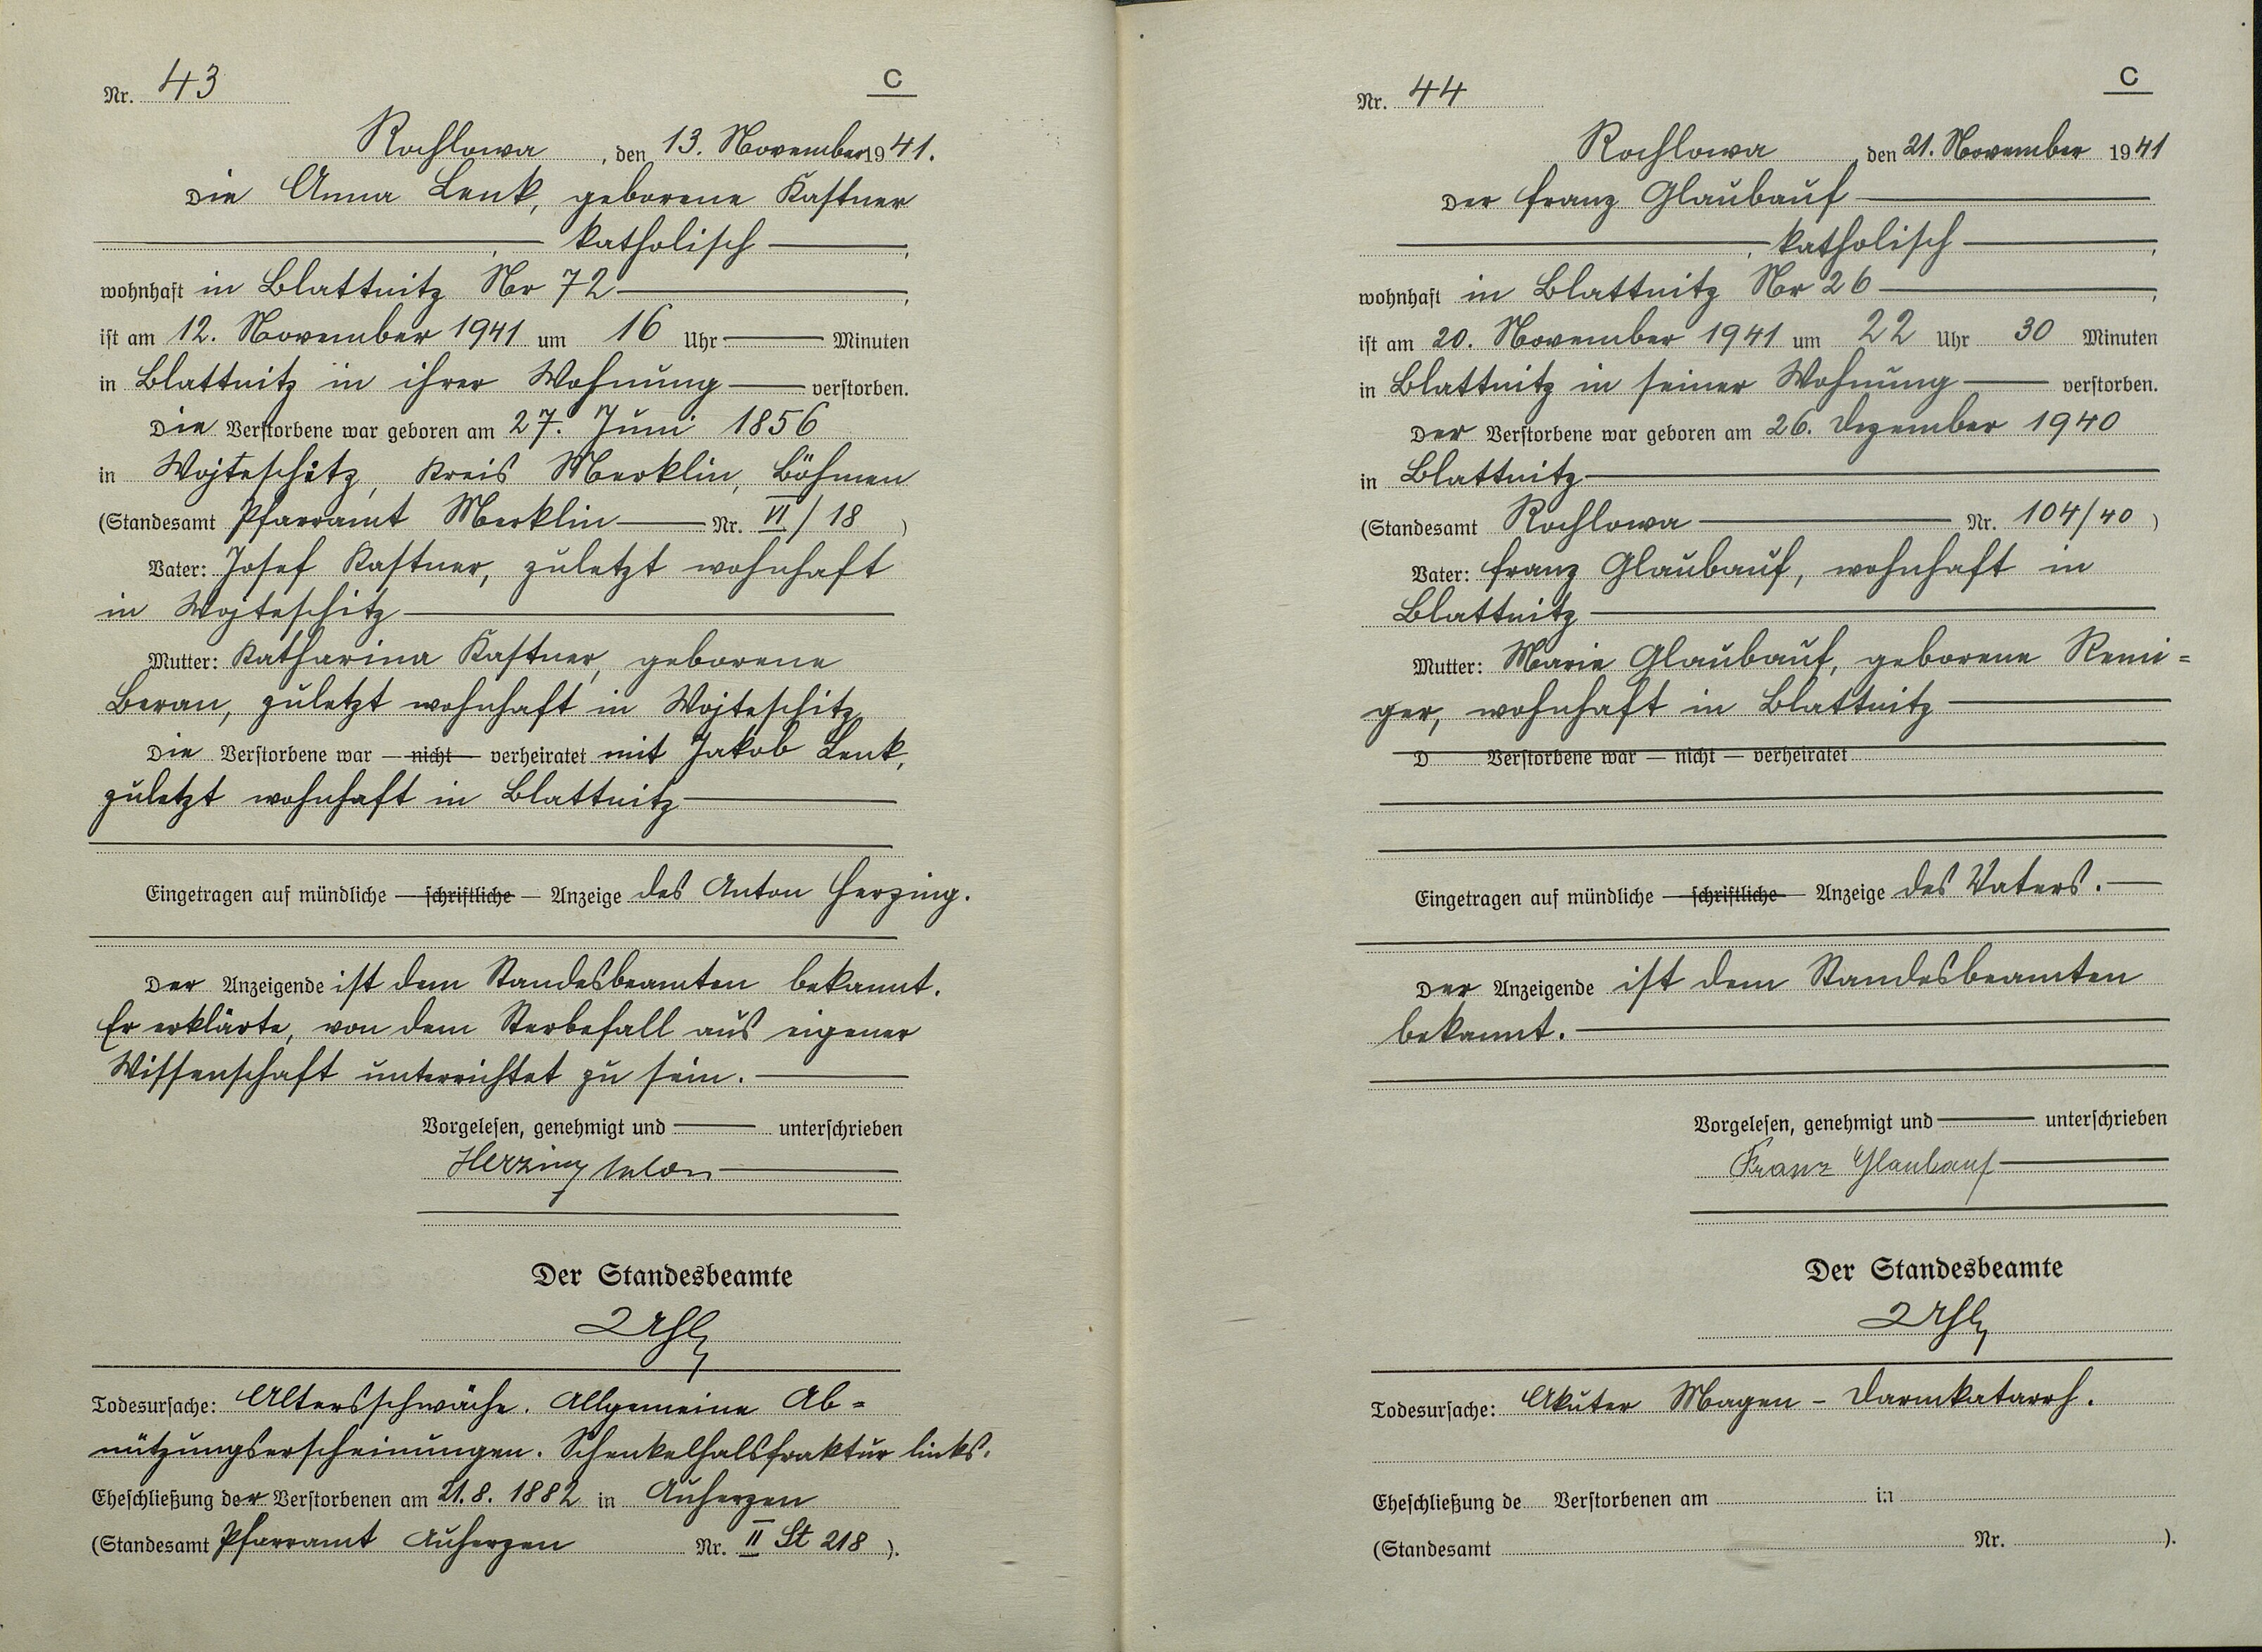 Nr. 43
C
Rochlowa, den 13. November 1941.
Die Anna Lenk, geborene Kastner
, katholisch ,
wohnhaft in Blattnitz Nr 72 ,
ist am 12. November 1941 um 16 Uhr Minuten
in Blattnitz in ihrer Wohnung verstorben.
Die Verstorbene war geboren am 27. Juni 1856
in Wojteschitz, Kreis Merklin, Böhmen
(Standesamt Pfarramt Merklin Nr. VI/18 )
Vater: Josef Kastner, zuletzt wohnhaft
in Wojteschitz
Mutter: Katharina Kastner, geborene
Beran, zuletzt wohnhaft in Wojteschitz
Die Verstorbene war — nicht — verheiratet mit Jakob Lenk,
zuletzt wohnhaft in Blattnitz
Eingetragen auf mündliche — schriftliche — Anzeige des Anton Herzing.
Der Anzeigende ist dem Standesbeamten bekannt.
Er erklärte, von dem Sterbefall aus eigener
Wissenschaft unterrichtet zu sein.
Vorgelesen, genehmigt und unterschrieben
Herzing
Der Standesbeamte
Todesursache: Altersschwäche. Allgemeine Ab=
nützungserscheinungen. Schenkelhalsfraktur links.
Eheschließung der Verstorbenen am 21.8.1882 in Auherzen
(Standesamt Pfarramt Auherzen Nr. II St 218 ).
Nr. 44
C
Rochlowa, den 21. November 1941
Der Franz Glaubauf
, katholisch ,
wohnhaft in Blattnitz Nr 26 ,
ist am 20. November 1941 um 22 Uhr 30 Minuten
in Blattnitz in seiner Wohnung verstorben.
Der Verstorbene war geboren am 26. Dezember 1940
in Blattnitz
(Standesamt Rochlowa Nr. 104/40 )
Vater: Franz Glaubauf, wohnhaft in
Blattnitz
Mutter: Marie Glaubauf, geborene Remi=
ger, wohnhaft in Blattnitz
D Verstorbene war — nicht — verheiratet
Eingetragen auf mündliche — schriftliche — Anzeige des Vaters.
Der Anzeigende ist dem Standesbeamten
bekannt.
Vorgelesen, genehmigt und unterschrieben
Franz Glaubauf
Der Standesbeamte
Todesursache: Akuter Magen - Darmkatarrh.
Eheschließung de Verstorbenen am in
(Standesamt Nr. ).